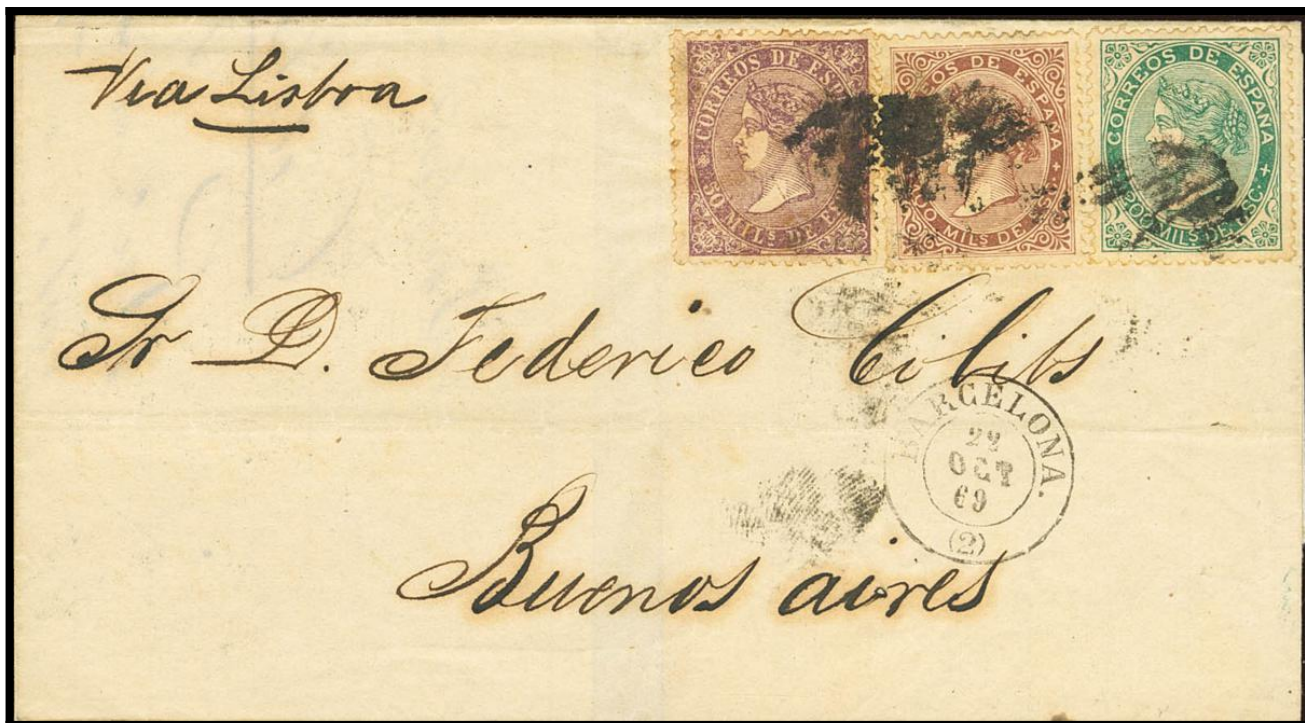 Via Lisboa
CORREOS DE ESP
50 MILs DE E
OS DE ESPAÑA
00 MILs DE ESC.
CORREOS DE ESPAÑA
200 MILs DE ESC.
Sr D. Federico
BARCELONA.
OCT
69
(2)
Buenos aires